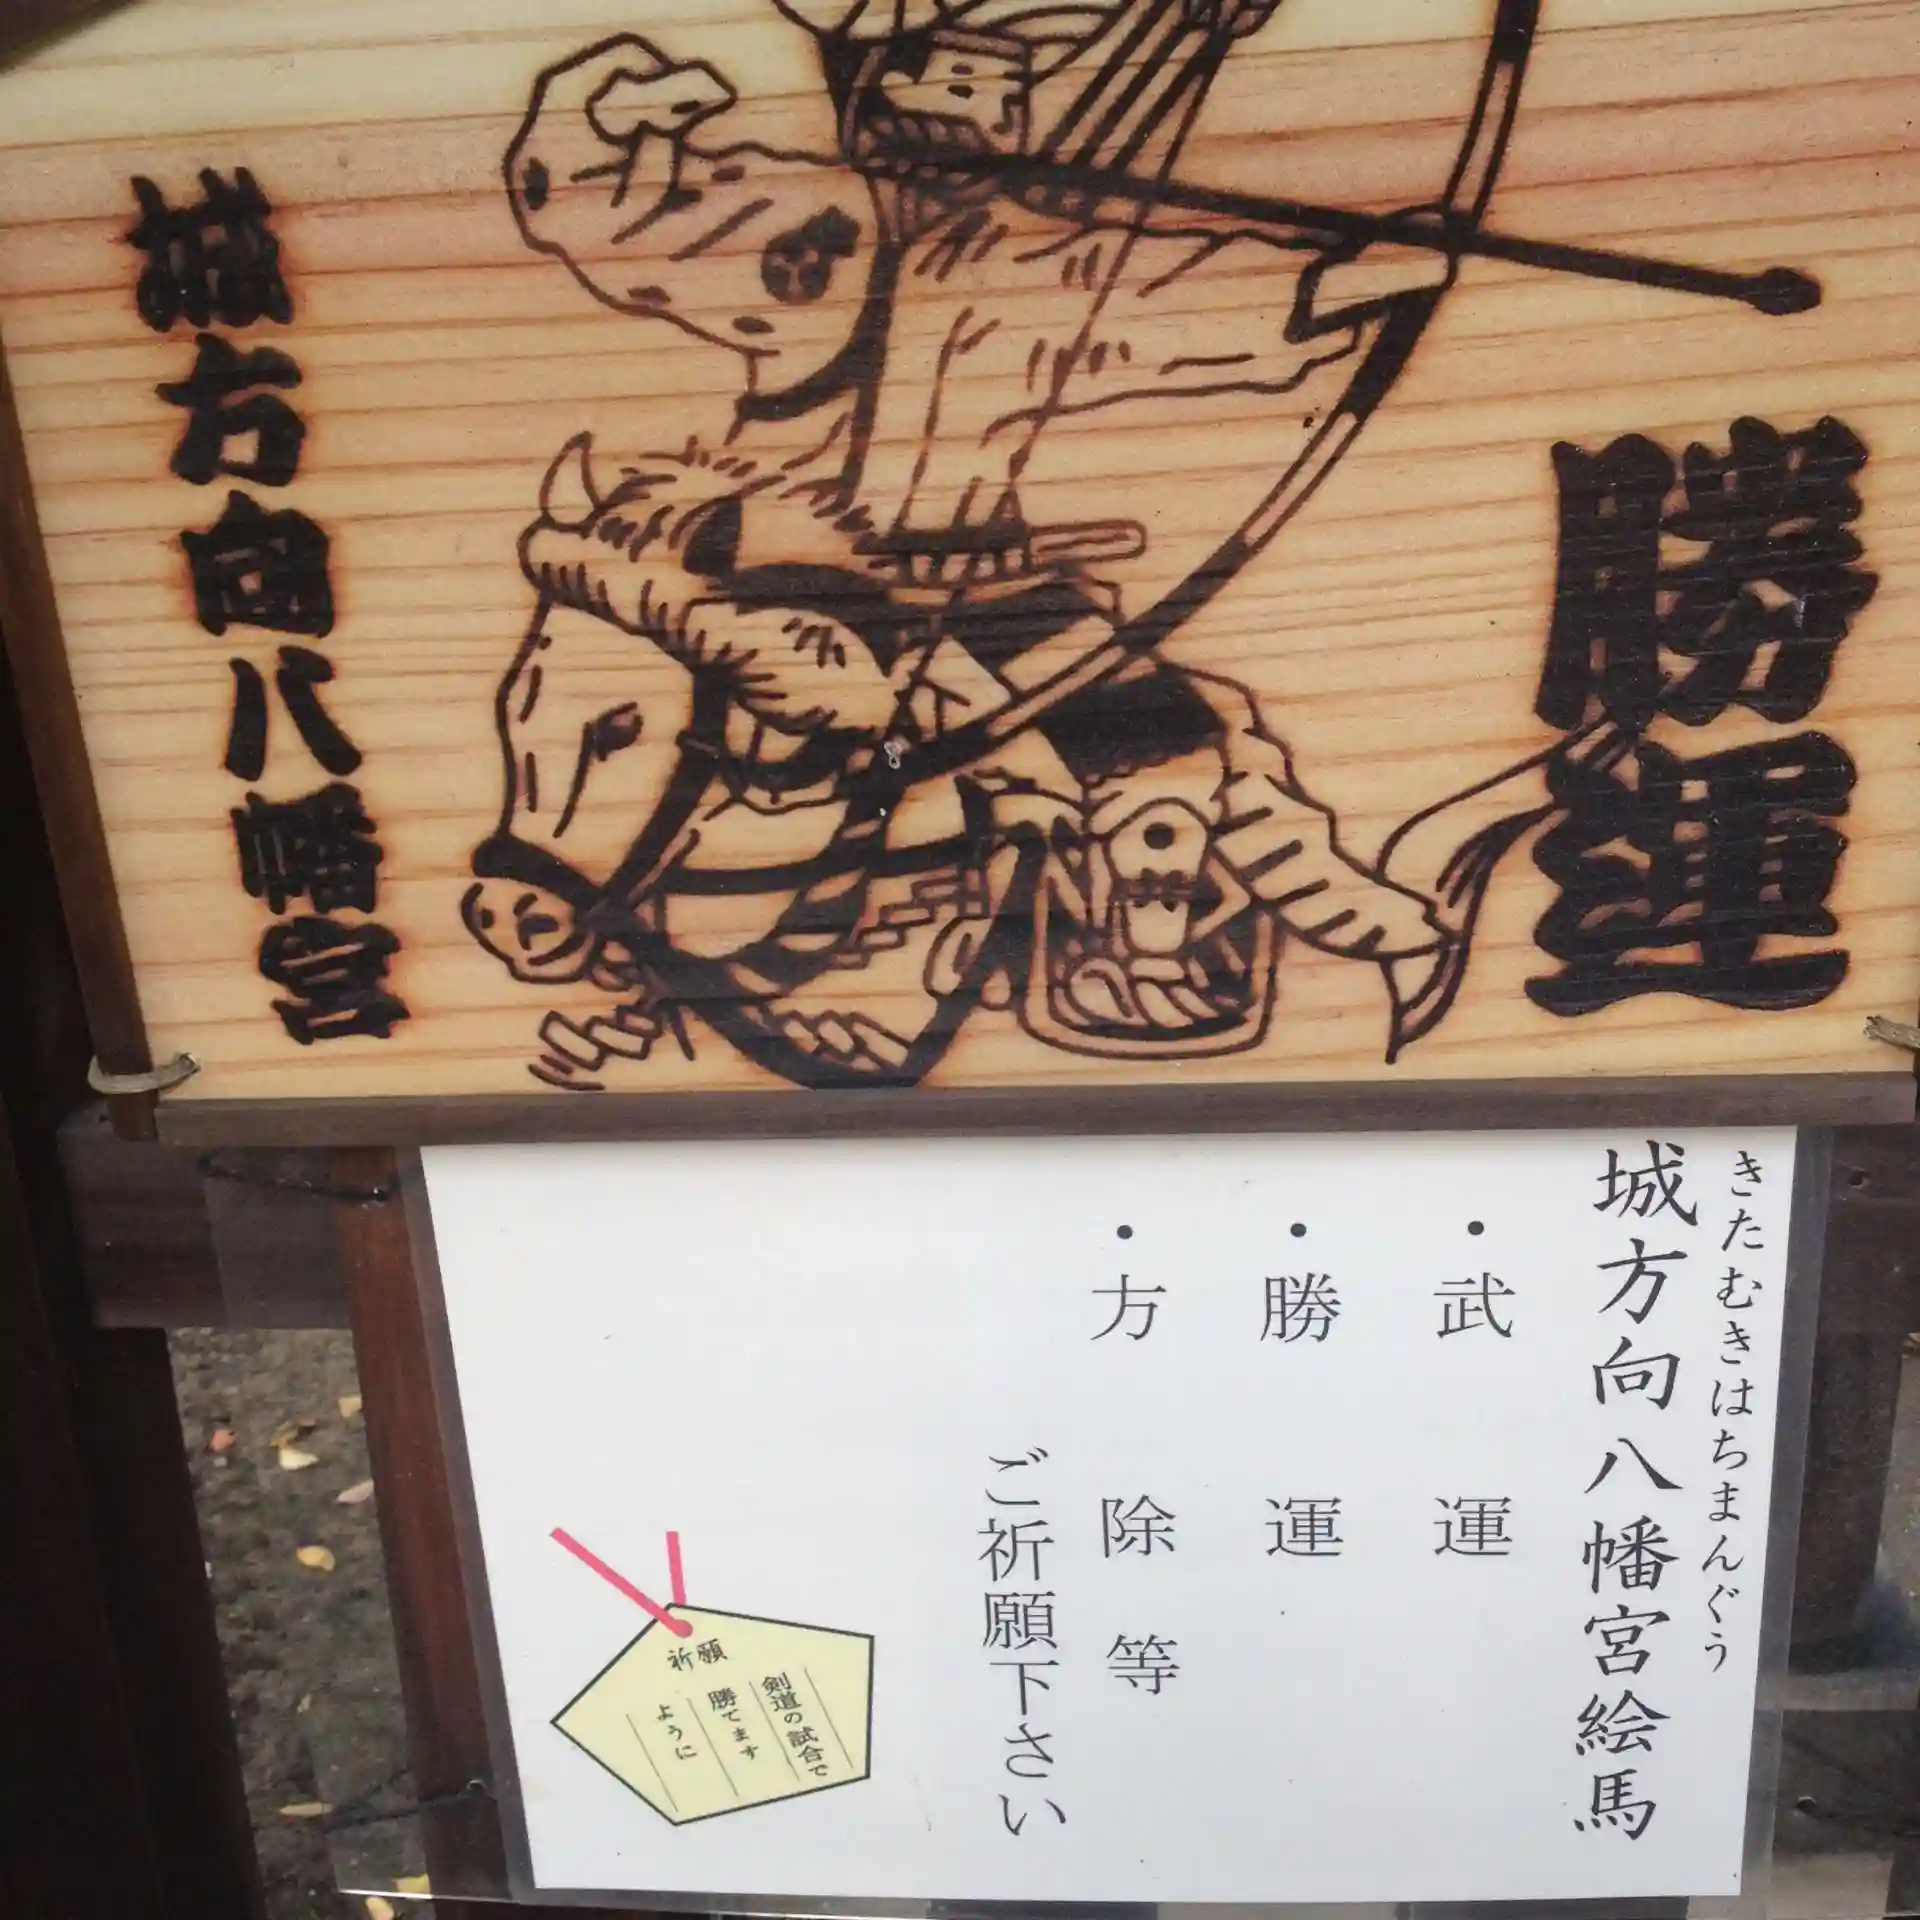 勝運
城方向八幡宮
きたむきはちまんぐう
城方向八幡宮絵馬
・武運
・勝運
・方除等
ご祈願下さい
祈願
剣道の試合で
勝てます
ように